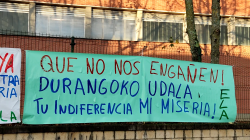 YA
QUE NO NOS ENGAÑEN!
DURANGOKO UDALA,
TU INDIFERENCIA MI MISERIA!
ELA